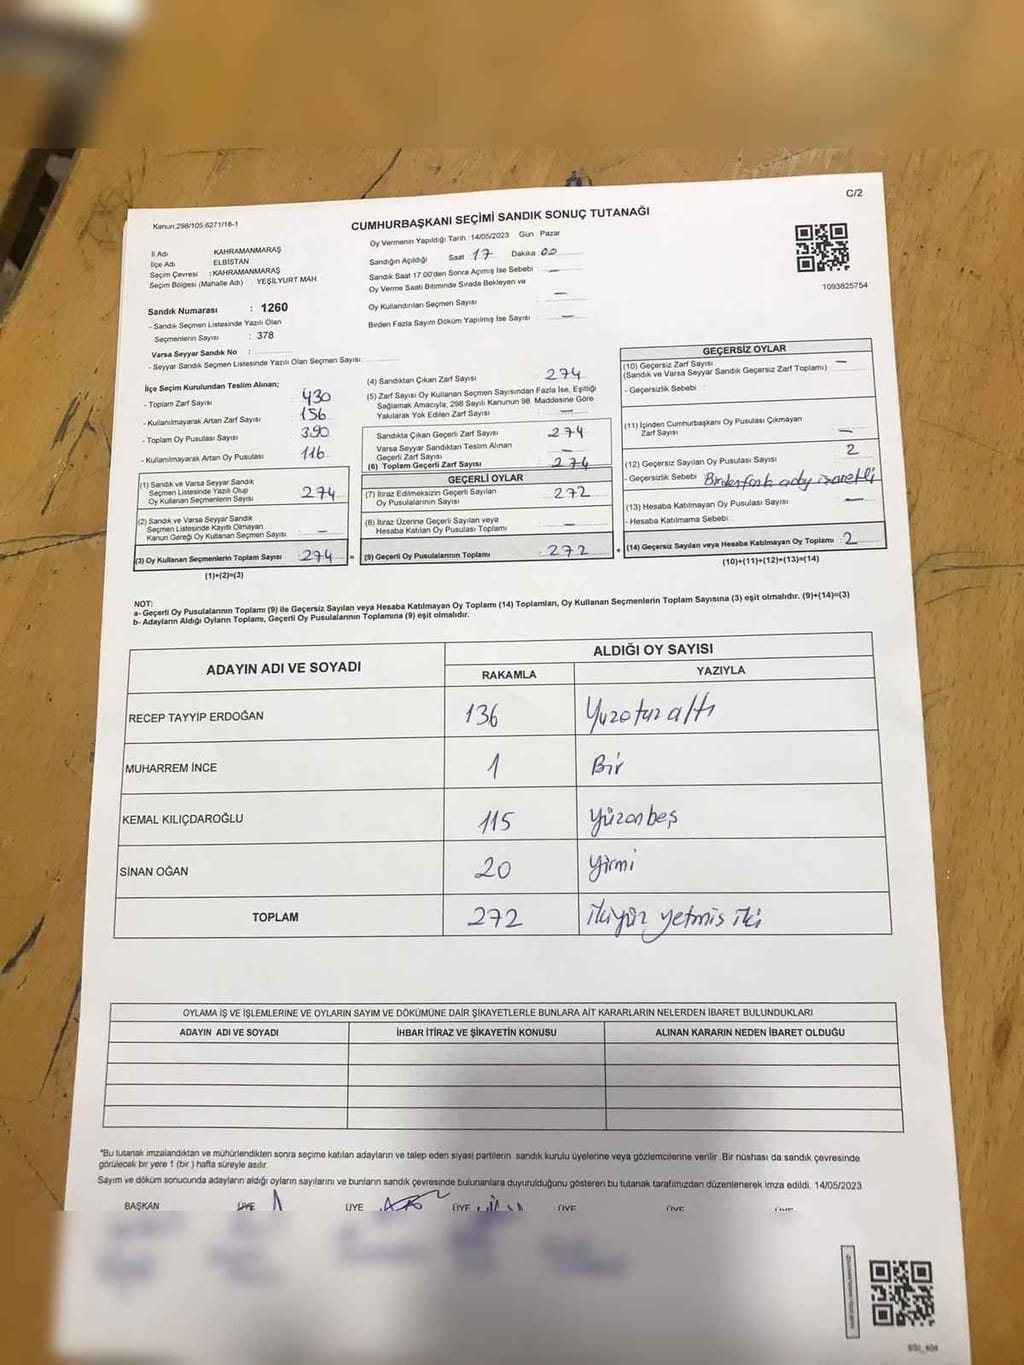 C/2
Kanun:298/105;6271/16-1
CUMHURBAŞKANI SEÇİMİ SANDIK SONUÇ TUTANAĞI
Oy Vermenin Yapıldığı Tarih :14/05/2023 Gün : Pazar
İl Adı : KAHRAMANMARAŞ
İlçe Adı : ELBİSTAN
Seçim Çevresi : KAHRAMANMARAŞ
Seçim Bölgesi (Mahalle Adı) : YEŞİLYURT MAH
Sandığın Açıldığı Saat 17 Dakika 00
Sandık Saat 17.00'den Sonra Açımış İse Sebebi : —
Oy Verme Saati Bitiminde Sırada Bekleyen ve
Oy Kullandırılan Seçmen Sayısı : —
Birden Fazla Sayım Döküm Yapılmış İse Sayısı : —
1093825754
Sandık Numarası : 1260
- Sandık Seçmen Listesinde Yazılı Olan
Seçmenlerin Sayısı : 378
Varsa Seyyar Sandık No :
- Seyyar Sandık Seçmen Listesinde Yazılı Olan Seçmen Sayısı:
İlçe Seçim Kurulundan Teslim Alınan;
- Toplam Zarf Sayısı : 430
- Kullanılmayarak Artan Zarf Sayısı : 156
- Toplam Oy Pusulası Sayısı : 390
- Kullanılmayarak Artan Oy Pusulası : 116
(1) Sandık ve Varsa Seyyar Sandık
Seçmen Listesinde Yazılı Olup
Oy Kullanan Seçmenlerin Sayısı : 274
(2) Sandık ve Varsa Seyyar Sandık
Seçmen Listesinde Kayıtlı Olmayan
Kanun Gereği Oy Kullanan Seçmen Sayısı : —
(3) Oy Kullanan Seçmenlerin Toplam Sayısı : 274
(1)+(2)=(3)
(4) Sandıktan Çıkan Zarf Sayısı : 274
(5) Zarf Sayısı Oy Kullanan Seçmen Sayısından Fazla İse, Eşitliği
Sağlamak Amacıyla, 298 Sayılı Kanunun 98. Maddesine Göre
Yakılarak Yok Edilen Zarf Sayısı : —
Sandıkta Çıkan Geçerli Zarf Sayısı : 274
Varsa Seyyar Sandıktan Teslim Alınan
Geçerli Zarf Sayısı : —
(6) Toplam Geçerli Zarf Sayısı : 274
GEÇERLİ OYLAR
(7) İtiraz Edilmeksizin Geçerli Sayılan
Oy Pusulalarının Sayısı : 272
(8) İtiraz Üzerine Geçerli Sayılan veya
Hesaba Katılan Oy Pusulası Toplamı : —
(9) Geçerli Oy Pusulalarının Toplamı : 272
GEÇERSİZ OYLAR
(10) Geçersiz Zarf Sayısı : —
(Sandık ve Varsa Seyyar Sandık Geçersiz Zarf Toplamı)
- Geçersizlik Sebebi :
(11) İçinden Cumhurbaşkanı Oy Pusulası Çıkmayan
Zarf Sayısı : —
(12) Geçersiz Sayılan Oy Pusulası Sayısı : 2
- Geçersizlik Sebebi : Birdenfazla aday işaretli
(13) Hesaba Katılmayan Oy Pusulası Sayısı : —
- Hesaba Katılmama Sebebi :
(14) Geçersiz Sayılan veya Hesaba Katılmayan Oy Toplamı : 2
(10)+(11)+(12)+(13)=(14)
NOT:
a- Geçerli Oy Pusulalarının Toplamı (9) ile Geçersiz Sayılan veya Hesaba Katılmayan Oy Toplamı (14) Toplamları, Oy Kullanan Seçmenlerin Toplam Sayısına (3) eşit olmalıdır. (9)+(14)=(3)
b- Adayların Aldığı Oyların Toplamı, Geçerli Oy Pusulalarının Toplamına (9) eşit olmalıdır.
ADAYIN ADI VE SOYADI ALDIĞI OY SAYISI
RAKAMLA YAZIYLA
RECEP TAYYİP ERDOĞAN 136 Yüzotuzaltı
MUHARREM İNCE 1 Bir
KEMAL KILIÇDAROĞLU 115 Yüzonbeş
SİNAN OĞAN 20 Yirmi
TOPLAM 272 ikiyüz yetmiş iki
OYLAMA İŞ VE İŞLEMLERİNE VE OYLARIN SAYIM VE DÖKÜMÜNE DAİR ŞİKAYETLERLE BUNLARA AİT KARARLARIN NELERDEN İBARET BULUNDUKLARI
ADAYIN ADI VE SOYADI İHBAR İTİRAZ VE ŞİKAYETİN KONUSU ALINAN KARARIN NEDEN İBARET OLDUĞU
*Bu tutanak imzalandıktan ve mühürlendikten sonra seçime katılan adayların ve talep eden siyasi partilerin sandık kurulu üyelerine veya gözlemcilerine verilir. Bir nüshası da sandık çevresinde
görülecek bir yere 1 (bir ) hafta süreyle asılır.
Sayım ve döküm sonucunda adayların aldığı oyların sayılarını ve bunların sandık çevresinde bulunanlara duyurulduğunu gösteren bu tutanak tarafımızdan düzenlenerek imza edildi. 14/05/2023
BAŞKAN ÜYE ÜYE ÜYE ÜYE ÜYE ÜYE